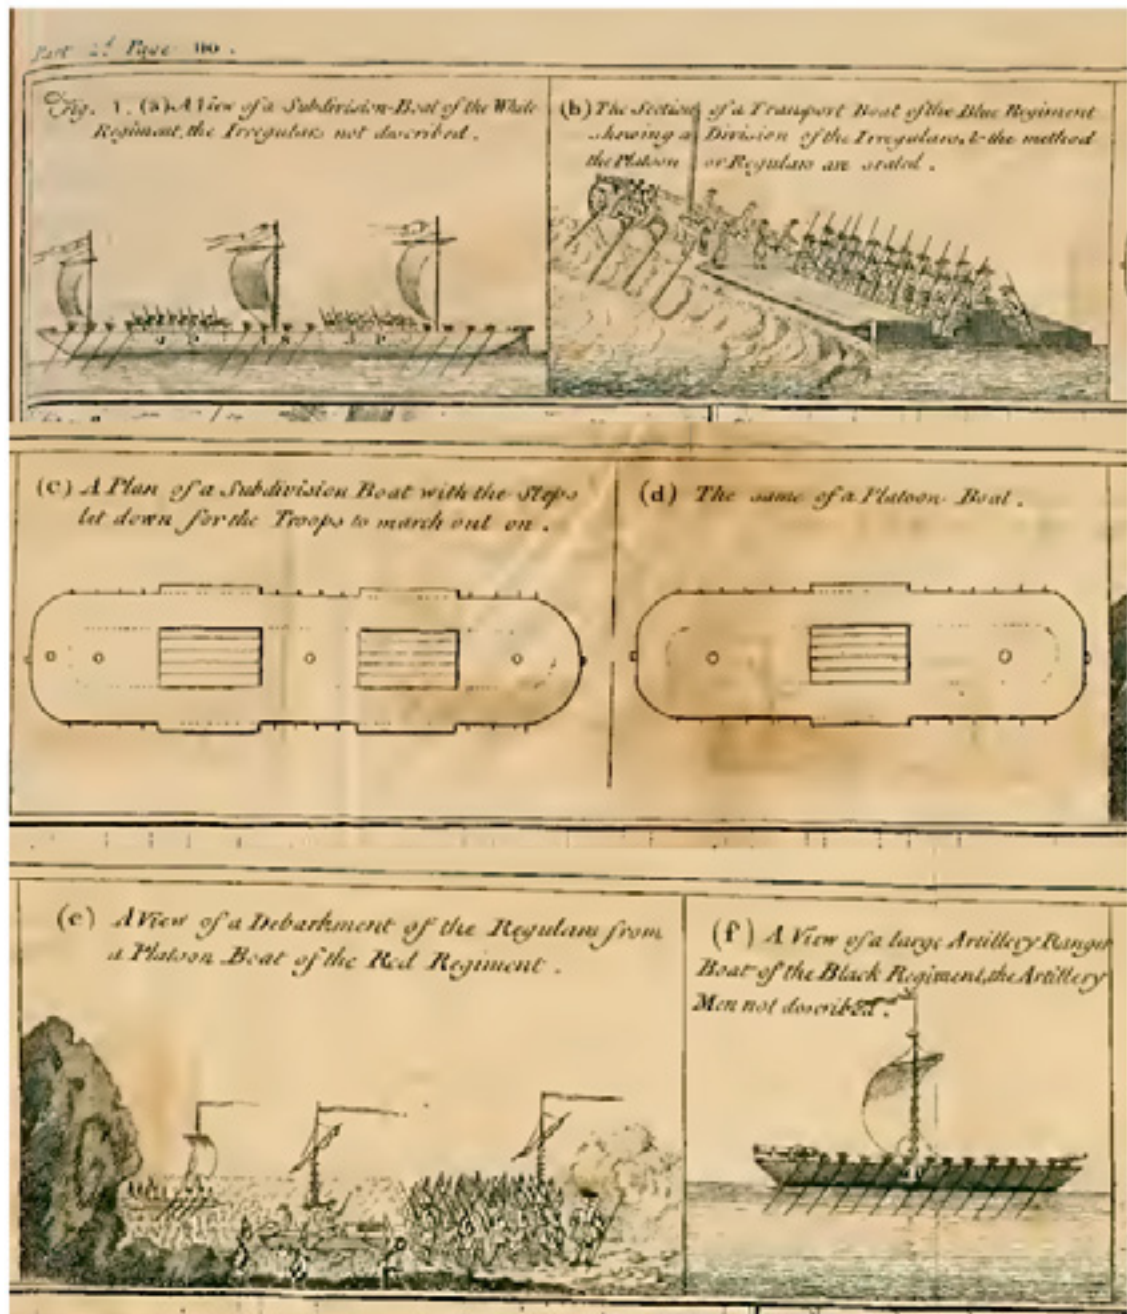 Part 2.d Page 110.
Fig. 1. (a) A View of a Subdivision Boat of the White
Regiment, the Irregulars not described.
(b) The Section of a Transport Boat of the Blue Regiment
shewing a Division of the Irregulars, & the method
the Platoon or Regulars are seated.
(c) A Plan of a Subdivision Boat with the Steps
let down for the Troops to march out on.
(d) The same of a Platoon Boat.
(e) A View of a Debarkment of the Regulars from
a Platoon Boat of the Red Regiment.
(f) A View of a large Artillery Ranger
Boat of the Black Regiment, the Artillery
Men not described.